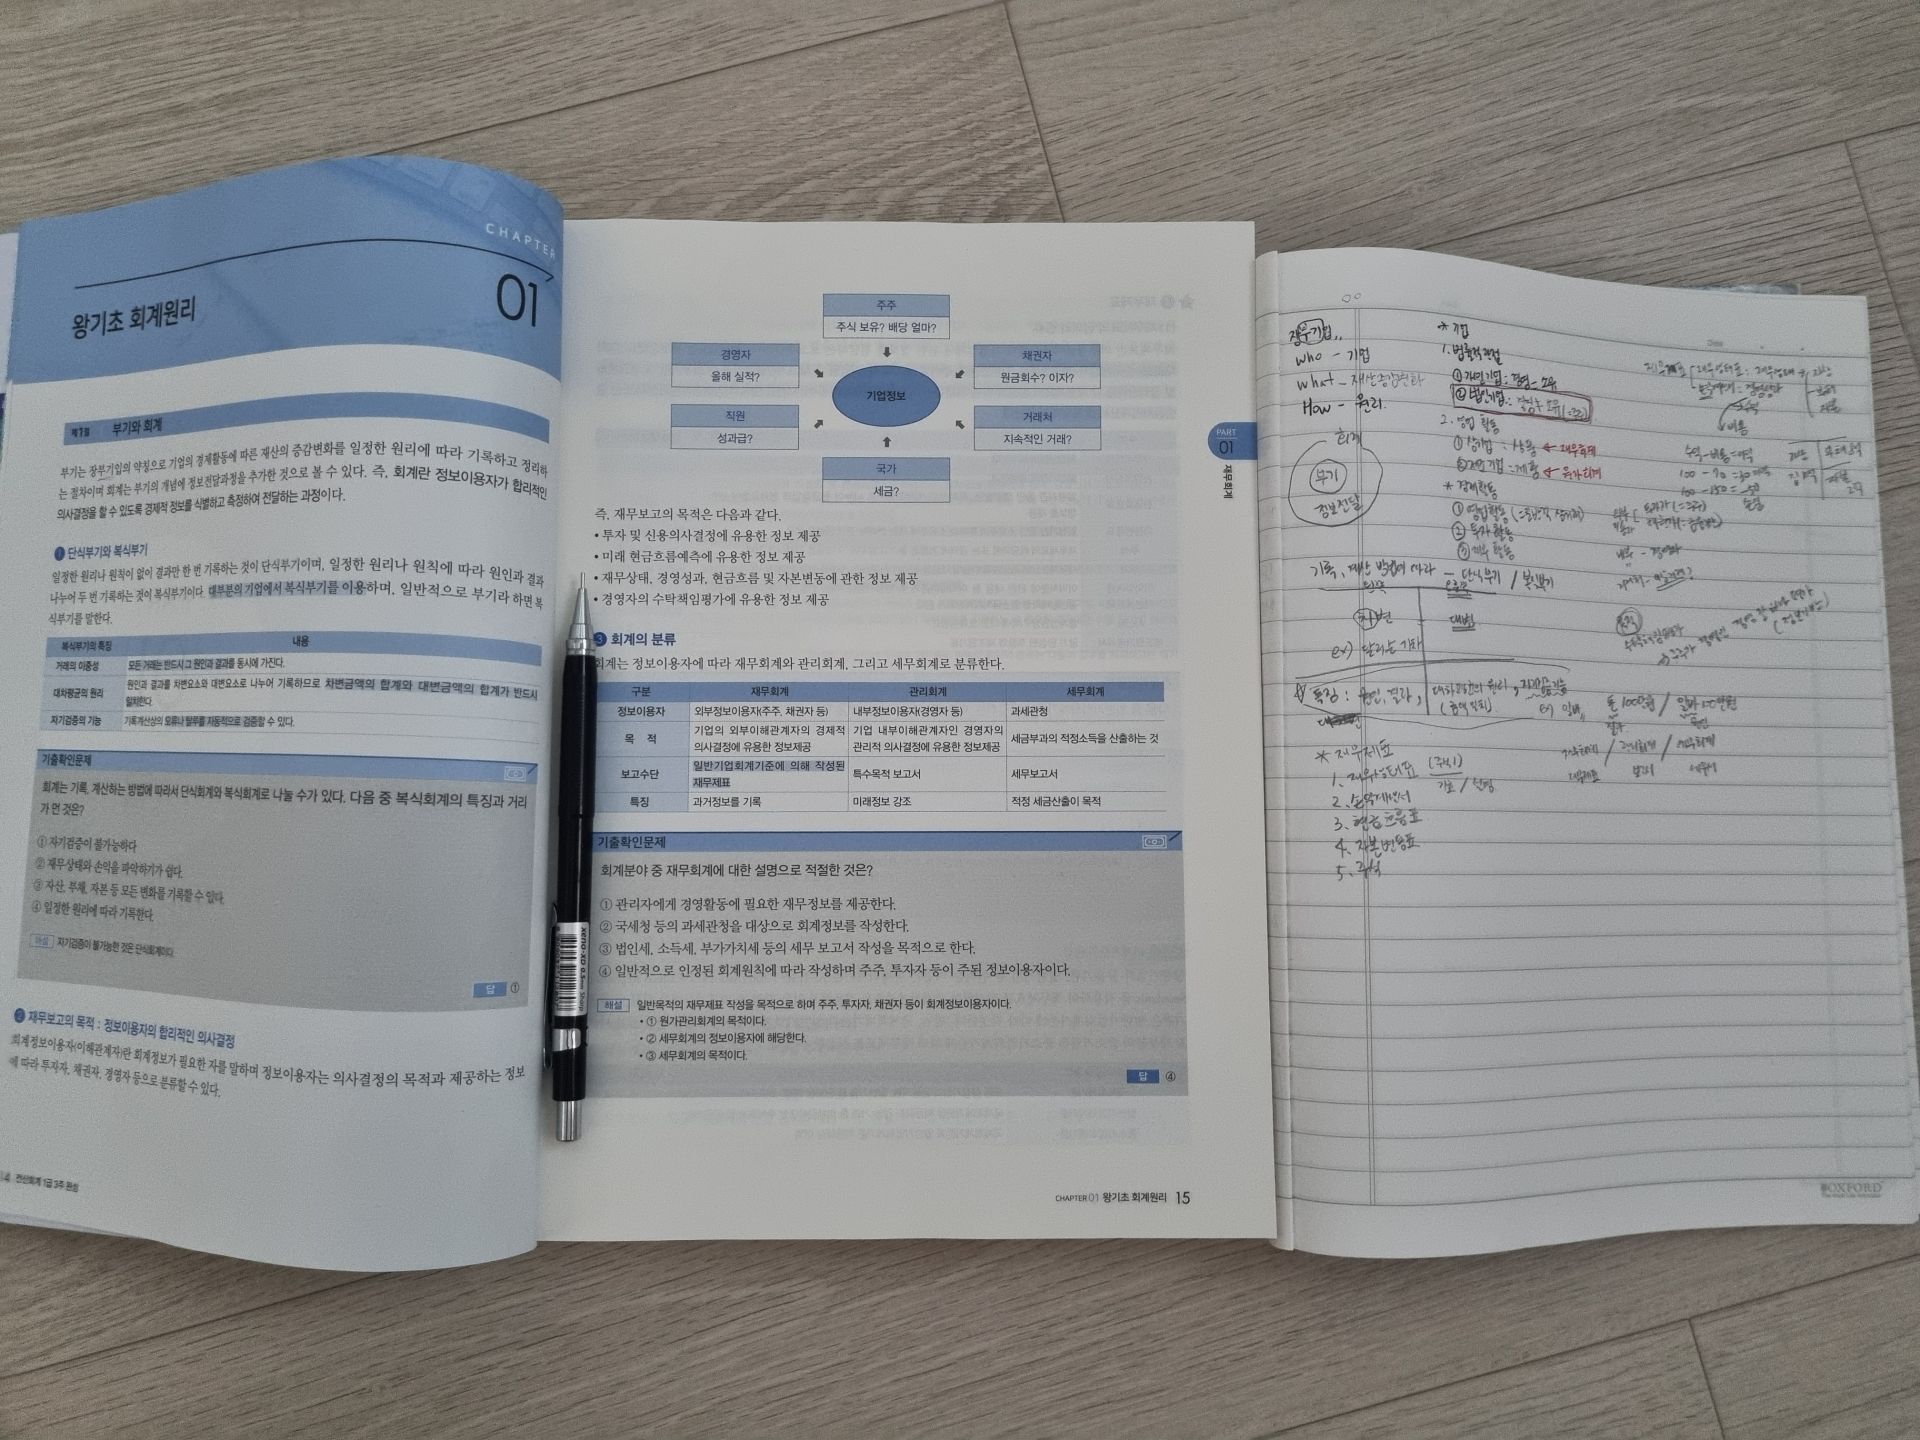 CHAPTER
01
왕기초 회계원리
제1절 부기와 회계
부기는 장부기입의 약칭으로 기업의 경제활동에 따른 재산의 증감변화를 일정한 원리에 따라 기록하고 정리하
는 절차이며 회계는 부기의 개념에 정보전달과정을 추가한 것으로 볼 수 있다. 즉, 회계란 정보이용자가 합리적인
의사결정을 할 수 있도록 경제적 정보를 식별하고 측정하여 전달하는 과정이다.
1 단식부기와 복식부기
일정한 원리나 원칙이 없이 결과만 한 번 기록하는 것이 단식부기이며, 일정한 원리나 원칙에 따라 원인과 결과
나누어 두 번 기록하는 것이 복식부기이다. 대부분의 기업에서 복식부기를 이용하며, 일반적으로 부기라 하면 복
식부기를 말한다.
복식부기의 특징 내용
거래의 이중성 모든 거래는 반드시 그 원인과 결과를 동시에 가진다.
대차평균의 원리 원인과 결과를 차변요소와 대변요소로 나누어 기록하므로 차변금액의 합계와 대변금액의 합계가 반드시
일치한다.
자기검증의 기능 기록계산상의 오류나 탈루를 자동적으로 검증할 수 있다.
기출확인문제
회계는 기록, 계산하는 방법에 따라서 단식회계와 복식회계로 나눌 수가 있다. 다음 중 복식회계의 특징과 거리
가 먼 것은?
① 자기검증이 불가능하다
② 재무상태와 손익을 파악하기가 쉽다.
③ 자산, 부채, 자본 등 모든 변화를 기록할 수 있다.
④ 일정한 원리에 따라 기록한다.
해설 자기검증이 불가능한 것은 단식회계이다.
답 ①
2 재무보고의 목적 : 정보이용자의 합리적인 의사결정
회계정보이용자(이해관계자)란 회계정보가 필요한 자를 말하며 정보이용자는 의사결정의 목적과 제공하는 정보
에 따라 투자자, 채권자, 경영자 등으로 분류할 수 있다.
14 전산회계 1급 3주 완성
주주
주식 보유? 배당 얼마?
경영자
올해 실적?
채권자
원금회수? 이자?
기업정보
직원
성과급?
거래처
지속적인 거래?
국가
세금?
즉, 재무보고의 목적은 다음과 같다.
• 투자 및 신용의사결정에 유용한 정보 제공
• 미래 현금흐름예측에 유용한 정보 제공
• 재무상태, 경영성과, 현금흐름 및 자본변동에 관한 정보 제공
• 경영자의 수탁책임평가에 유용한 정보 제공
3 회계의 분류
회계는 정보이용자에 따라 재무회계와 관리회계, 그리고 세무회계로 분류한다.
구분 재무회계 관리회계 세무회계
정보이용자 외부정보이용자(주주, 채권자 등) 내부정보이용자(경영자 등) 과세관청
목 적 기업의 외부이해관계자의 경제적 의사결정에 유용한 정보제공 기업 내부이해관계자인 경영자의 관리적 의사결정에 유용한 정보제공 세금부과의 적정소득을 산출하는 것
보고수단 일반기업회계기준에 의해 작성된 재무제표 특수목적 보고서 세무보고서
특징 과거정보를 기록 미래정보 강조 적정 세금산출이 목적
기출확인문제
회계분야 중 재무회계에 대한 설명으로 적절한 것은?
① 관리자에게 경영활동에 필요한 재무정보를 제공한다.
② 국세청 등의 과세관청을 대상으로 회계정보를 작성한다.
③ 법인세, 소득세, 부가가치세 등의 세무 보고서 작성을 목적으로 한다.
④ 일반적으로 인정된 회계원칙에 따라 작성하며 주주, 투자자 등이 주된 정보이용자이다.
해설 일반목적의 재무제표 작성을 목적으로 하며 주주, 투자자, 채권자 등이 회계정보이용자이다.
• ① 원가관리회계의 목적이다.
• ② 세무회계의 정보이용자에 해당한다.
• ③ 세무회계의 목적이다.
답 ④
PART
01
재무회계
CHAPTER 01 왕기초 회계원리 15
xeno-XD 0.5mm Sharp
장부기입
who - 기업
what - 재산증감변화
How - 원리.
회계
부기
정보전달
* 기업
1. 법률적 관점
① 개인기업 : 경영 = 소유
② 법인기업 :
2. 영업 활동
① 상기업 : 상품 ← 재무회계
제품 ← 원가회계
* 경제활동
① 영업활동
② 투자활동
③ 재무활동
기록, 계산 방법에 따라 - 단식부기 / 복식부기
왼쪽 오른쪽
차변 대변
ex)
특징 : 원인, 결과, 대차평균의 원리,
* 재무제표
1. 재무상태표 (주석)
2. 손익계산서
3. 현금흐름표
4. 자본변동표
5. 주석
수익 - 비용 = 이익
100 - 70 = 30
100 - 150 = -50
재무회계 / 관리회계 / 세무회계
OXFORD